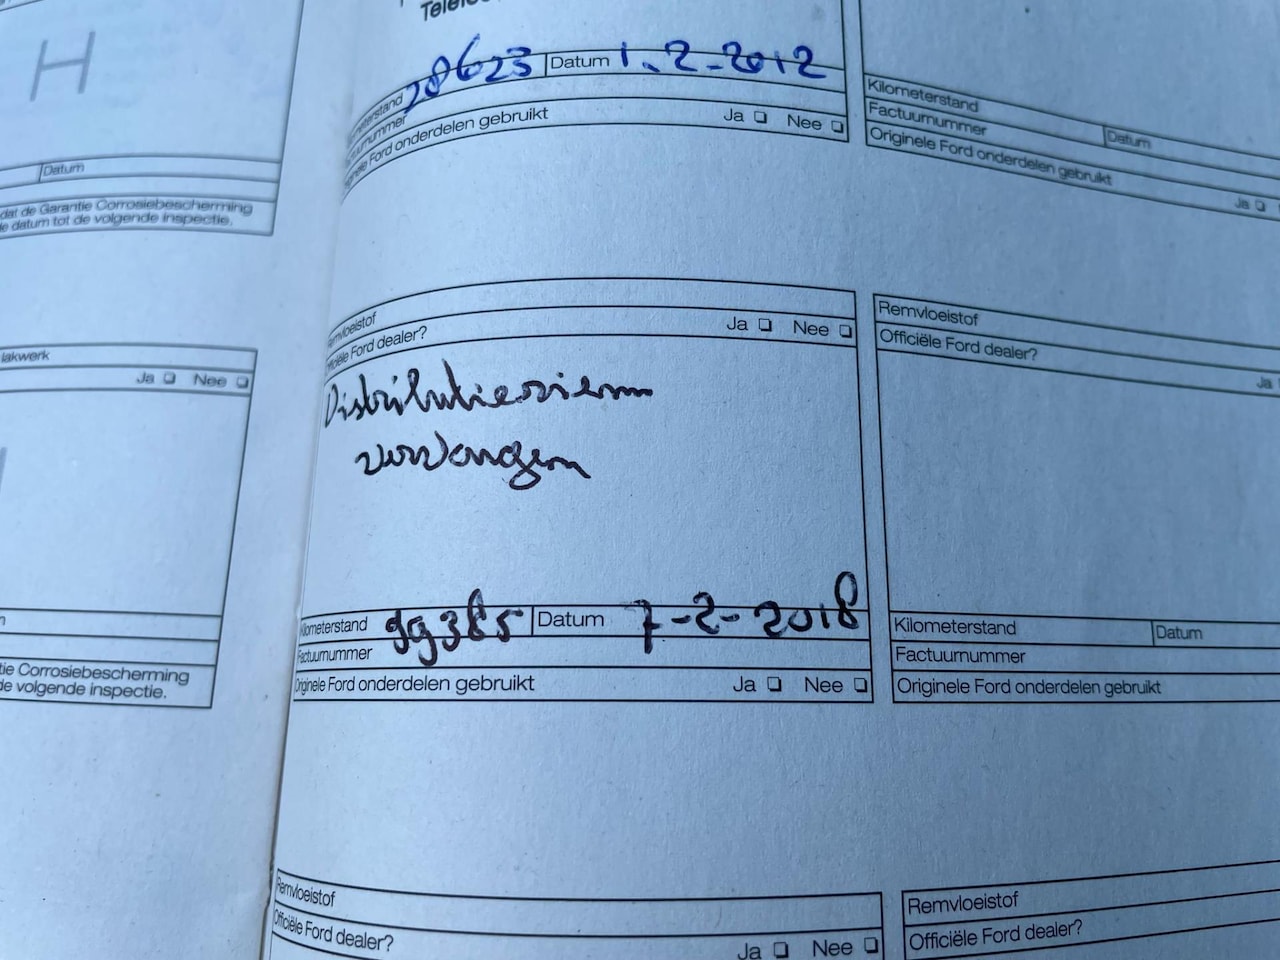 H
Datum
dat de Garantie Corrosiebescherming
e datum tot de volgende inspectie.
lakwerk
Ja ❏ Nee ❏
tie Corrosiebescherming
de volgende inspectie.
28623 Datum 1.2-2012
Originele Ford onderdelen gebruikt Ja ❏ Nee ❏
Kilometerstand Datum
Factuurnummer
Originele Ford onderdelen gebruikt Ja ❏
Remvloeistof
Officiële Ford dealer? Ja ❏ Nee ❏
Distributieriem
vervangen
Kilometerstand 99385 Datum 7-2-2018
Factuurnummer
Originele Ford onderdelen gebruikt Ja ❏ Nee ❏
Remvloeistof
Officiële Ford dealer? Ja
Kilometerstand Datum
Factuurnummer
Originele Ford onderdelen gebruikt
Remvloeistof
Officiële Ford dealer? Ja ❏ Nee ❏
Remvloeistof
Officiële Ford dealer?